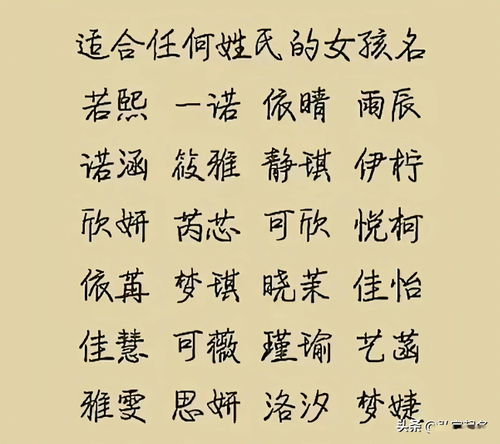 适合任何姓氏的女孩名
若熙 一诺 依晴 雨辰
诺涵 筱雅 静琪 伊柠
欣妍 芮芯 可欣 悦柯
依苒 梦琪 晓茉 佳怡
佳慧 可薇 瑾瑜 艺菡
雅雯 思妍 洛汐 梦婕
头条